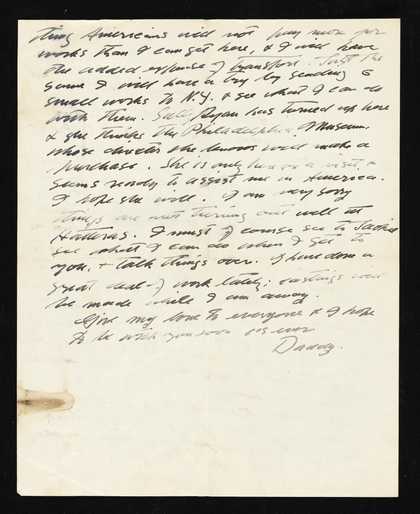 thing Americans will not pay more for
works than I can get here, & I will have
the added expense of transport. Just the
same I will have a try by sending 6
small works to N.Y. & see what I can do
with them. Sally Ryan has turned up here
& she thinks the Philadelphia Museum,
whose director she knows will make a
purchase. She is only here on a visit, &
seems ready to assist me in America.
I hope she will. I am very sorry
things are not turning out well at
Hatteras. I must of course see to
see what I can do when I get to
you, & talk things over. I have done a
great deal of work lately; castings will
be made while I am away.
Give my love to everyone & I hope
to be with you soon as ever
Daddy.